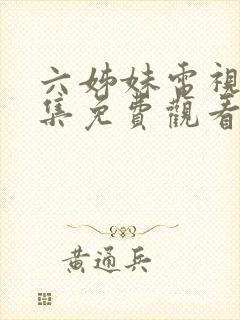 六姊妹電視
集免費觀看
黃通兵